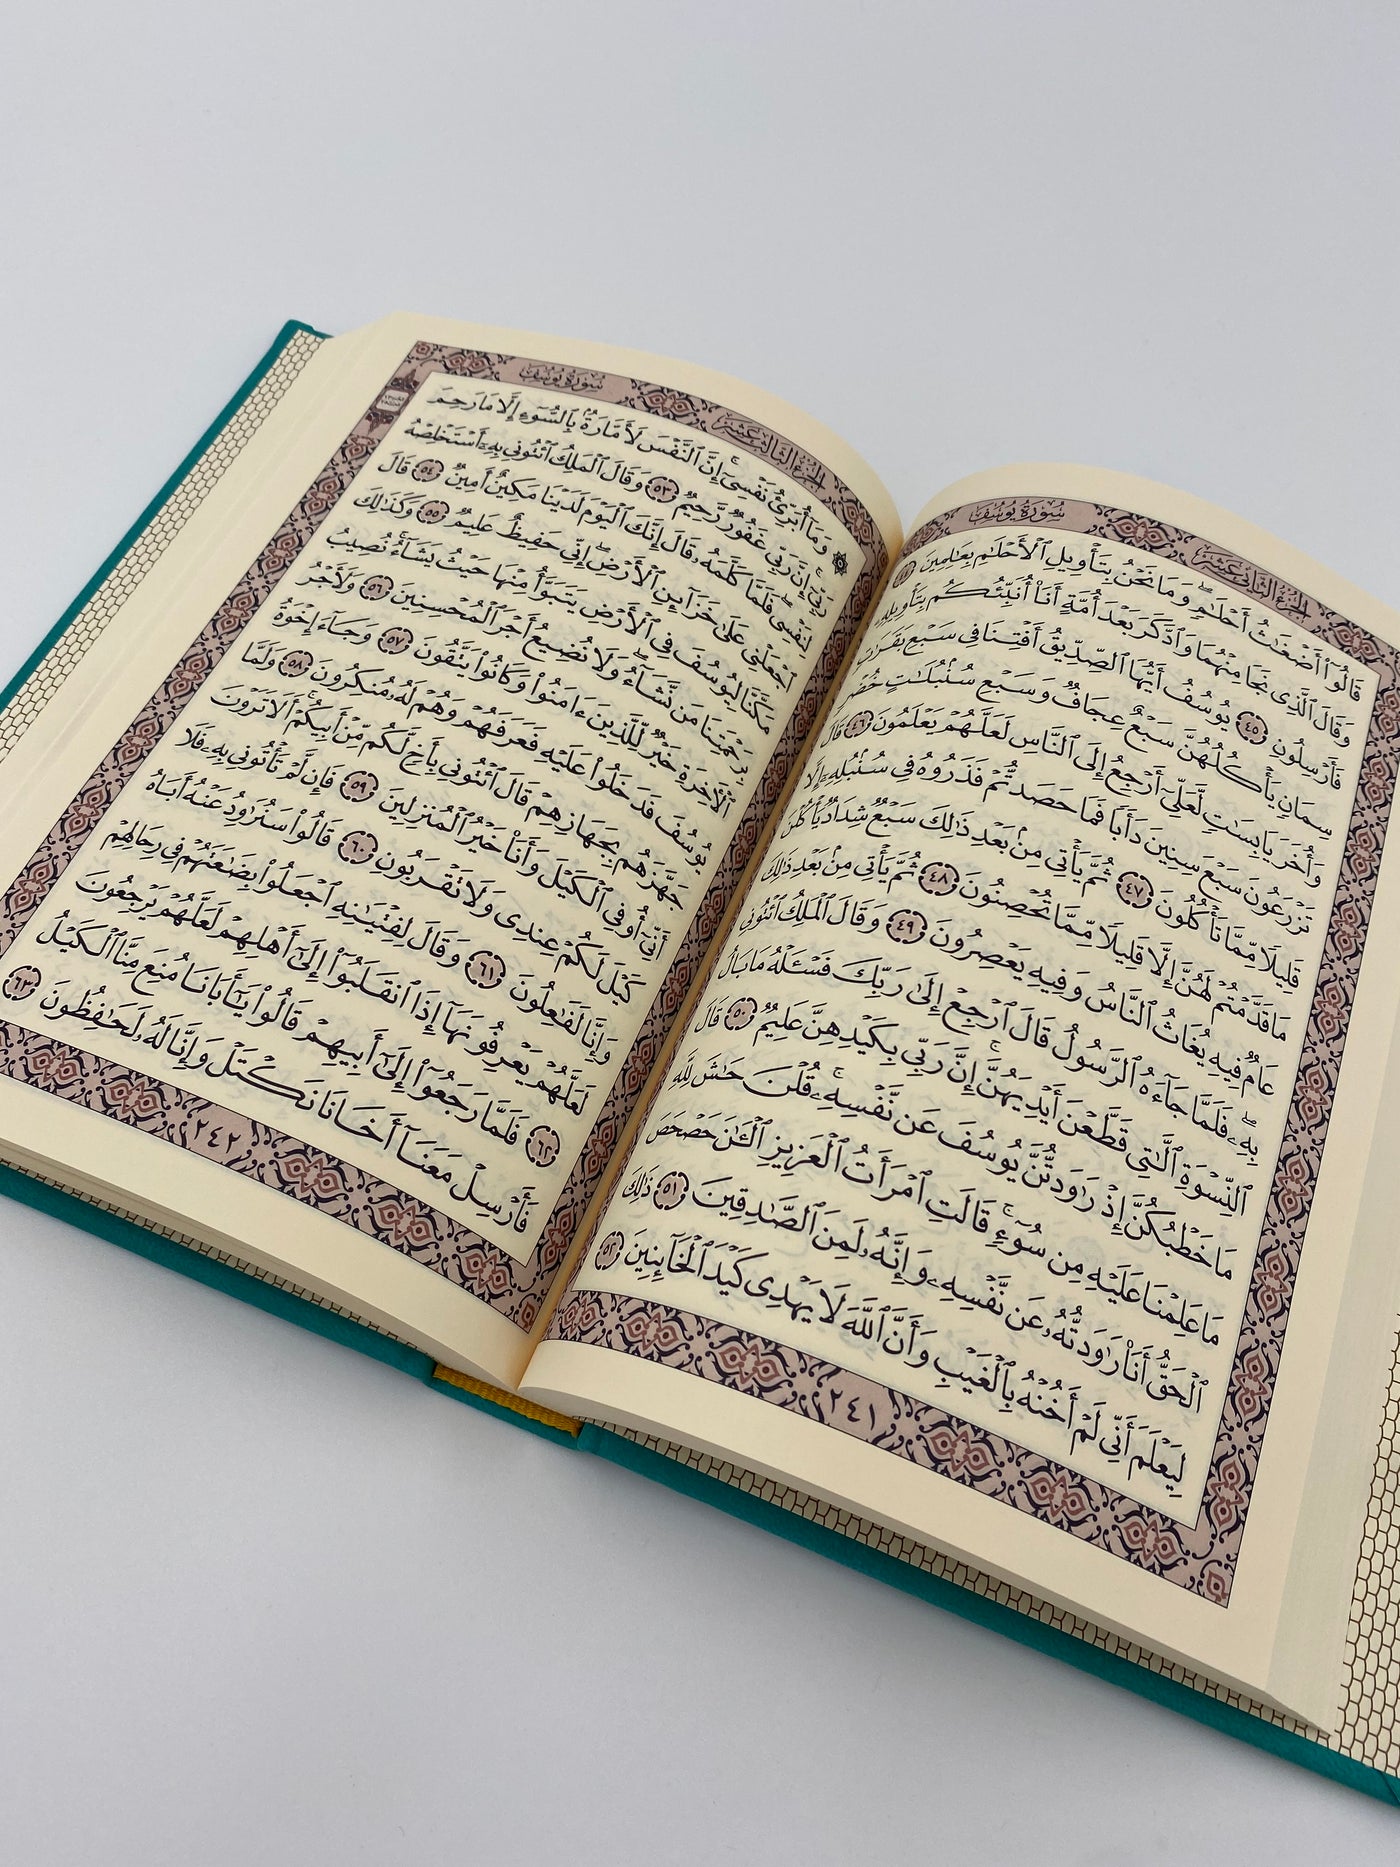 سُورَةُ يُوسُفَ
الجُزْءُ الثَّانِي عَشَرَ
قَالُوٓا۟ أَضْغَـٰثُ أَحْلَـٰمٍ ۖ وَمَا نَحْنُ بِتَأْوِيلِ ٱلْأَحْلَـٰمِ بِعَـٰلِمِينَ ٤٤
وَقَالَ ٱلَّذِى نَجَا مِنْهُمَا وَٱدَّكَرَ بَعْدَ أُمَّةٍ أَنَا۠ أُنَبِّئُكُم بِتَأْوِيلِهِۦ
فَأَرْسِلُونِ ٤٥ يُوسُفُ أَيُّهَا ٱلصِّدِّيقُ أَفْتِنَا فِى سَبْعِ بَقَرَٰتٍ
سِمَانٍ يَأْكُلُهُنَّ سَبْعٌ عِجَافٌ وَسَبْعِ سُنۢبُلَـٰتٍ خُضْرٍ
وَأُخَرَ يَابِسَـٰتٍ لَّعَلِّىٓ أَرْجِعُ إِلَى ٱلنَّاسِ لَعَلَّهُمْ يَعْلَمُونَ ٤٦ قَالَ
تَزْرَعُونَ سَبْعَ سِنِينَ دَأَبًا فَمَا حَصَدتُّمْ فَذَرُوهُ فِى سُنۢبُلِهِۦٓ إِلَّا
قَلِيلًا مِّمَّا تَأْكُلُونَ ٤٧ ثُمَّ يَأْتِى مِنۢ بَعْدِ ذَٰلِكَ سَبْعٌ شِدَادٌ يَأْكُلْنَ
مَا قَدَّمْتُمْ لَهُنَّ إِلَّا قَلِيلًا مِّمَّا تُحْصِنُونَ ٤٨ ثُمَّ يَأْتِى مِنۢ بَعْدِ ذَٰلِكَ
عَامٌ فِيهِ يُغَاثُ ٱلنَّاسُ وَفِيهِ يَعْصِرُونَ ٤٩ وَقَالَ ٱلْمَلِكُ ٱئْتُونِى
بِهِۦ ۖ فَلَمَّا جَآءَهُ ٱلرَّسُولُ قَالَ ٱرْجِعْ إِلَىٰ رَبِّكَ فَسْـَٔلْهُ مَا بَالُ
ٱلنِّسْوَةِ ٱلَّـٰتِى قَطَّعْنَ أَيْدِيَهُنَّ ۚ إِنَّ رَبِّى بِكَيْدِهِنَّ عَلِيمٌ ٥٠ قَالَ
مَا خَطْبُكُنَّ إِذْ رَٰوَدتُّنَّ يُوسُفَ عَن نَّفْسِهِۦ ۚ قُلْنَ حَـٰشَ لِلَّهِ
مَا عَلِمْنَا عَلَيْهِ مِن سُوٓءٍ ۚ قَالَتِ ٱمْرَأَتُ ٱلْعَزِيزِ ٱلْـَٔـٰنَ حَصْحَصَ
ٱلْحَقُّ أَنَا۠ رَٰوَدتُّهُۥ عَن نَّفْسِهِۦ وَإِنَّهُۥ لَمِنَ ٱلصَّـٰدِقِينَ ٥١ ذَٰلِكَ
لِيَعْلَمَ أَنِّى لَمْ أَخُنْهُ بِٱلْغَيْبِ وَأَنَّ ٱللَّهَ لَا يَهْدِى كَيْدَ ٱلْخَآئِنِينَ ٥٢
٢٤١
سُورَةُ يُوسُفَ
الجُزْءُ الثَّالِثَ عَشَرَ
وَمَآ أُبَرِّئُ نَفْسِىٓ ۚ إِنَّ ٱلنَّفْسَ لَأَمَّارَةٌۢ بِٱلسُّوٓءِ إِلَّا مَا رَحِمَ
رَبِّىٓ ۚ إِنَّ رَبِّى غَفُورٌ رَّحِيمٌ ٥٣ وَقَالَ ٱلْمَلِكُ ٱئْتُونِى بِهِۦٓ أَسْتَخْلِصْهُ
لِنَفْسِى ۖ فَلَمَّا كَلَّمَهُۥ قَالَ إِنَّكَ ٱلْيَوْمَ لَدَيْنَا مَكِينٌ أَمِينٌ ٥٤ قَالَ
ٱجْعَلْنِى عَلَىٰ خَزَآئِنِ ٱلْأَرْضِ ۖ إِنِّى حَفِيظٌ عَلِيمٌ ٥٥ وَكَذَٰلِكَ
مَكَّنَّا لِيُوسُفَ فِى ٱلْأَرْضِ يَتَبَوَّأُ مِنْهَا حَيْثُ يَشَآءُ ۚ نُصِيبُ
بِرَحْمَتِنَا مَن نَّشَآءُ ۖ وَلَا نُضِيعُ أَجْرَ ٱلْمُحْسِنِينَ ٥٦ وَلَأَجْرُ
ٱلْـَٔاخِرَةِ خَيْرٌ لِّلَّذِينَ ءَامَنُوا۟ وَكَانُوا۟ يَتَّقُونَ ٥٧ وَجَآءَ إِخْوَةُ
يُوسُفَ فَدَخَلُوا۟ عَلَيْهِ فَعَرَفَهُمْ وَهُمْ لَهُۥ مُنكِرُونَ ٥٨ وَلَمَّا
جَهَّزَهُم بِجَهَازِهِمْ قَالَ ٱئْتُونِى بِأَخٍ لَّكُم مِّنْ أَبِيكُمْ ۚ أَلَا تَرَوْنَ
أَنِّىٓ أُوفِى ٱلْكَيْلَ وَأَنَا۠ خَيْرُ ٱلْمُنزِلِينَ ٥٩ فَإِن لَّمْ تَأْتُونِى بِهِۦ فَلَا
كَيْلَ لَكُمْ عِندِى وَلَا تَقْرَبُونِ ٦٠ قَالُوا۟ سَنُرَٰوِدُ عَنْهُ أَبَاهُ
وَإِنَّا لَفَـٰعِلُونَ ٦١ وَقَالَ لِفِتْيَـٰنِهِ ٱجْعَلُوا۟ بِضَـٰعَتَهُمْ فِى رِحَالِهِمْ
لَعَلَّهُمْ يَعْرِفُونَهَآ إِذَا ٱنقَلَبُوٓا۟ إِلَىٰٓ أَهْلِهِمْ لَعَلَّهُمْ يَرْجِعُونَ
٦٢ فَلَمَّا رَجَعُوٓا۟ إِلَىٰٓ أَبِيهِمْ قَالُوا۟ يَـٰٓأَبَانَا مُنِعَ مِنَّا ٱلْكَيْلُ
فَأَرْسِلْ مَعَنَآ أَخَانَا نَكْتَلْ وَإِنَّا لَهُۥ لَحَـٰفِظُونَ ٦٣
٢٤٢